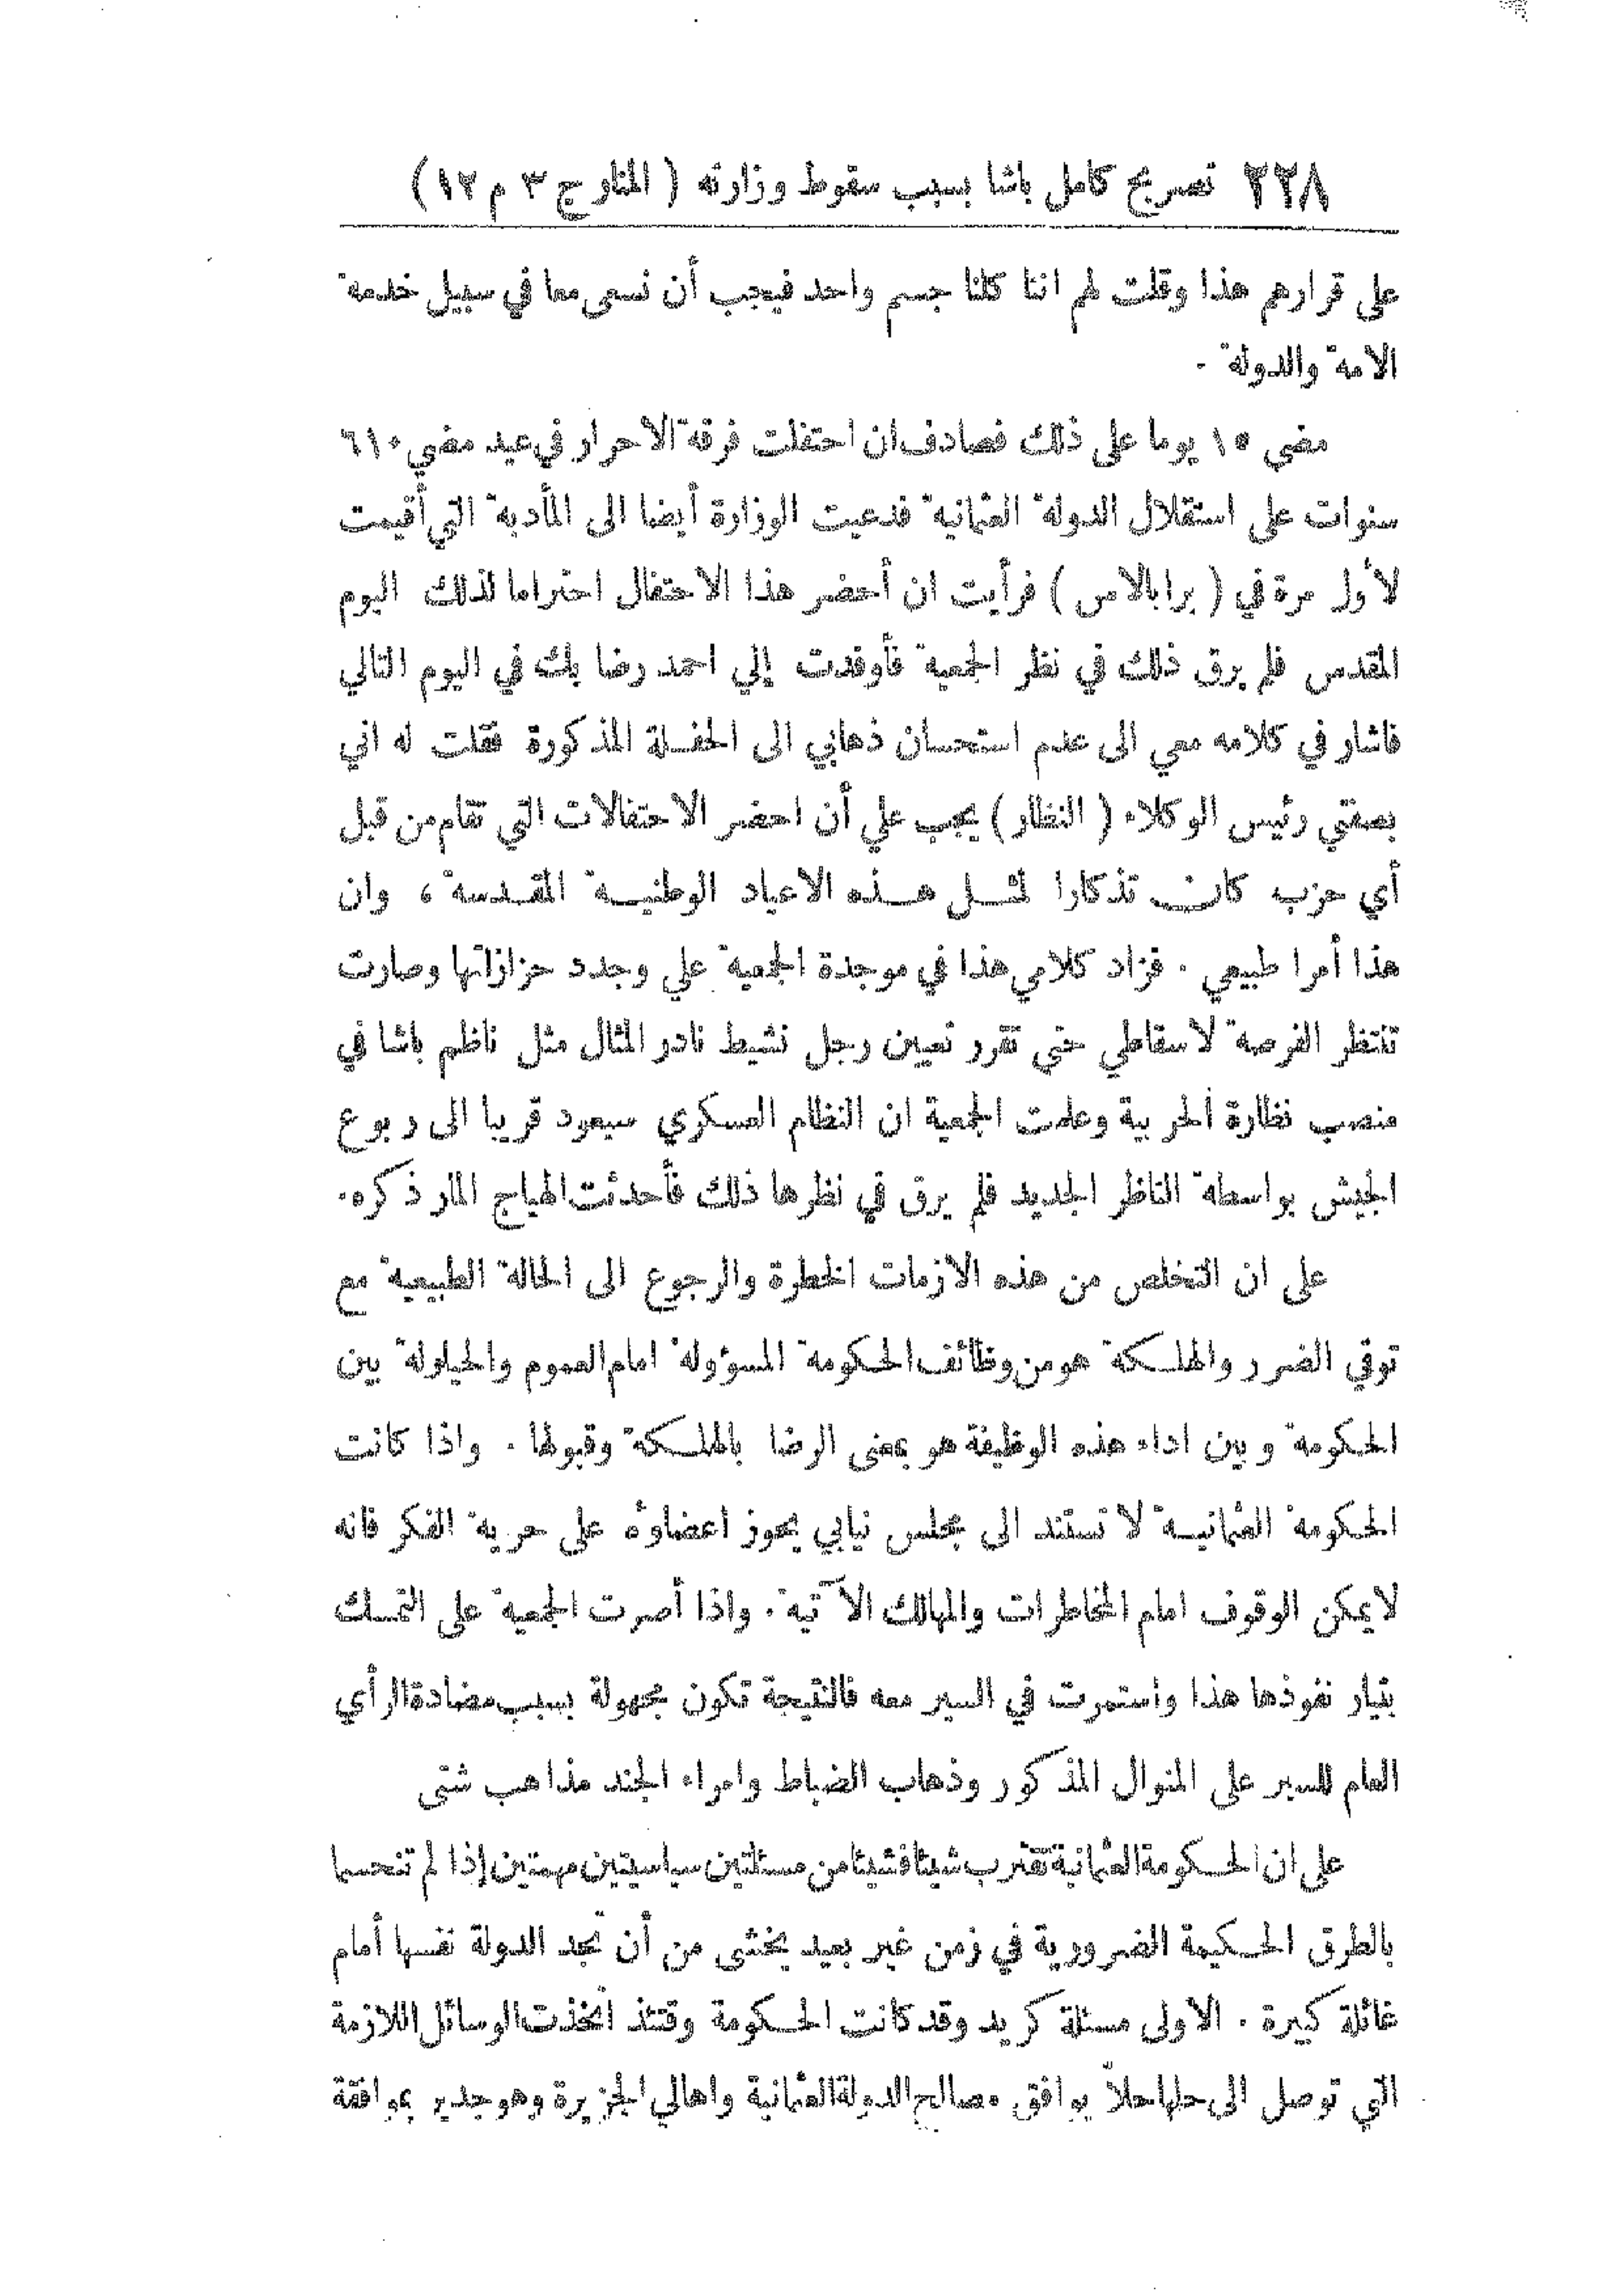 ٢٢٨ تصريح كامل باشا بسبب سقوط وزارته ( المنار ج ٣ م ١٢ )
على قرارهم هذا وقلت لهم اننا كلنا جسم واحد فيجب أن نسعى معا في سبيل خدمة
الامة والدولة .
مضى ١٥ يوما على ذلك فصادف ان احتفلت فرقة الاحرار في عيد مضي ٦١٠
سنوات على استقلال الدولة العثمانية فدعيت الوزارة أيضا الى المأدبة التي أقيمت
لأول مرة في ( برابالاس ) فرأيت ان أحضر هذا الاحتفال احتراما لذلك اليوم
المقدس فلم يرق ذلك في نظر الجمعية فأوفدت إلي احمد رضا بك في اليوم التالي
فاشار في كلامه معي الى عدم استحسان ذهابي الى الحفلة المذكورة فقلت له اني
بصفتي رئيس الوكلاء ( النظار ) يجب علي أن احضر الاحتفالات التي تقام من قبل
أي حزب كان تذكارا لمثل هذه الاعياد الوطنية المقدسة ، وان
هذا أمرا طبيعي . فزاد كلامي هذا في موجدة الجمعية علي وجدد حزازاتها وصارت
تنتظر الفرصة لاسقاطي حتى تقرر تعيين رجل نشيط نادر المثال مثل ناظم باشا في
منصب نظارة الحربية وعلمت الجمعية ان النظام العسكري سيعود قريبا الى ربوع
الجيش بواسطة الناظر الجديد فلم يرق في نظرها ذلك فأحدثت الهياج المار ذكره .
على ان التخلص من هذه الازمات الخطرة والرجوع الى الحالة الطبيعية مع
توقي الضرر والهلكة هو من وظائف الحكومة المسؤولة امام العموم والحيلولة بين
الحكومة وبين اداء هذه الوظيفة هو بمعنى الرضا بالهلكة وقبولها . واذا كانت
الحكومة العثمانية لا تستند الى مجلس نيابي يحوز اعضاؤه على حرية الفكر فانه
لايمكن الوقوف امام المخاطرات والمهالك الآتية . واذا أصرت الجمعية على التمسك
بتيار نفوذها هذا واستمرت في السير معه فالنتيجة تكون مجهولة بسبب مضادة الرأي
العام للسير على المنوال المذكور وذهاب الضباط وامراء الجند مذاهب شتى
على ان الحكومة العثمانية تقترب شيئا فشيئا من مسئلتين سياسيتين مهمتين إذا لم تنحسما
بالطرق الحكيمة الضرورية في زمن غير بعيد يخشى من أن تجد الدولة نفسها أمام
غائلة كبيرة . الاولى مسئلة كريد وقد كانت الحكومة وقتئذ اتخذت الوسائل اللازمة
التي توصل الى حلها حلاً يوافق مصالح الدولة العثمانية واهالي الجزيرة وهو جدير بموافقة